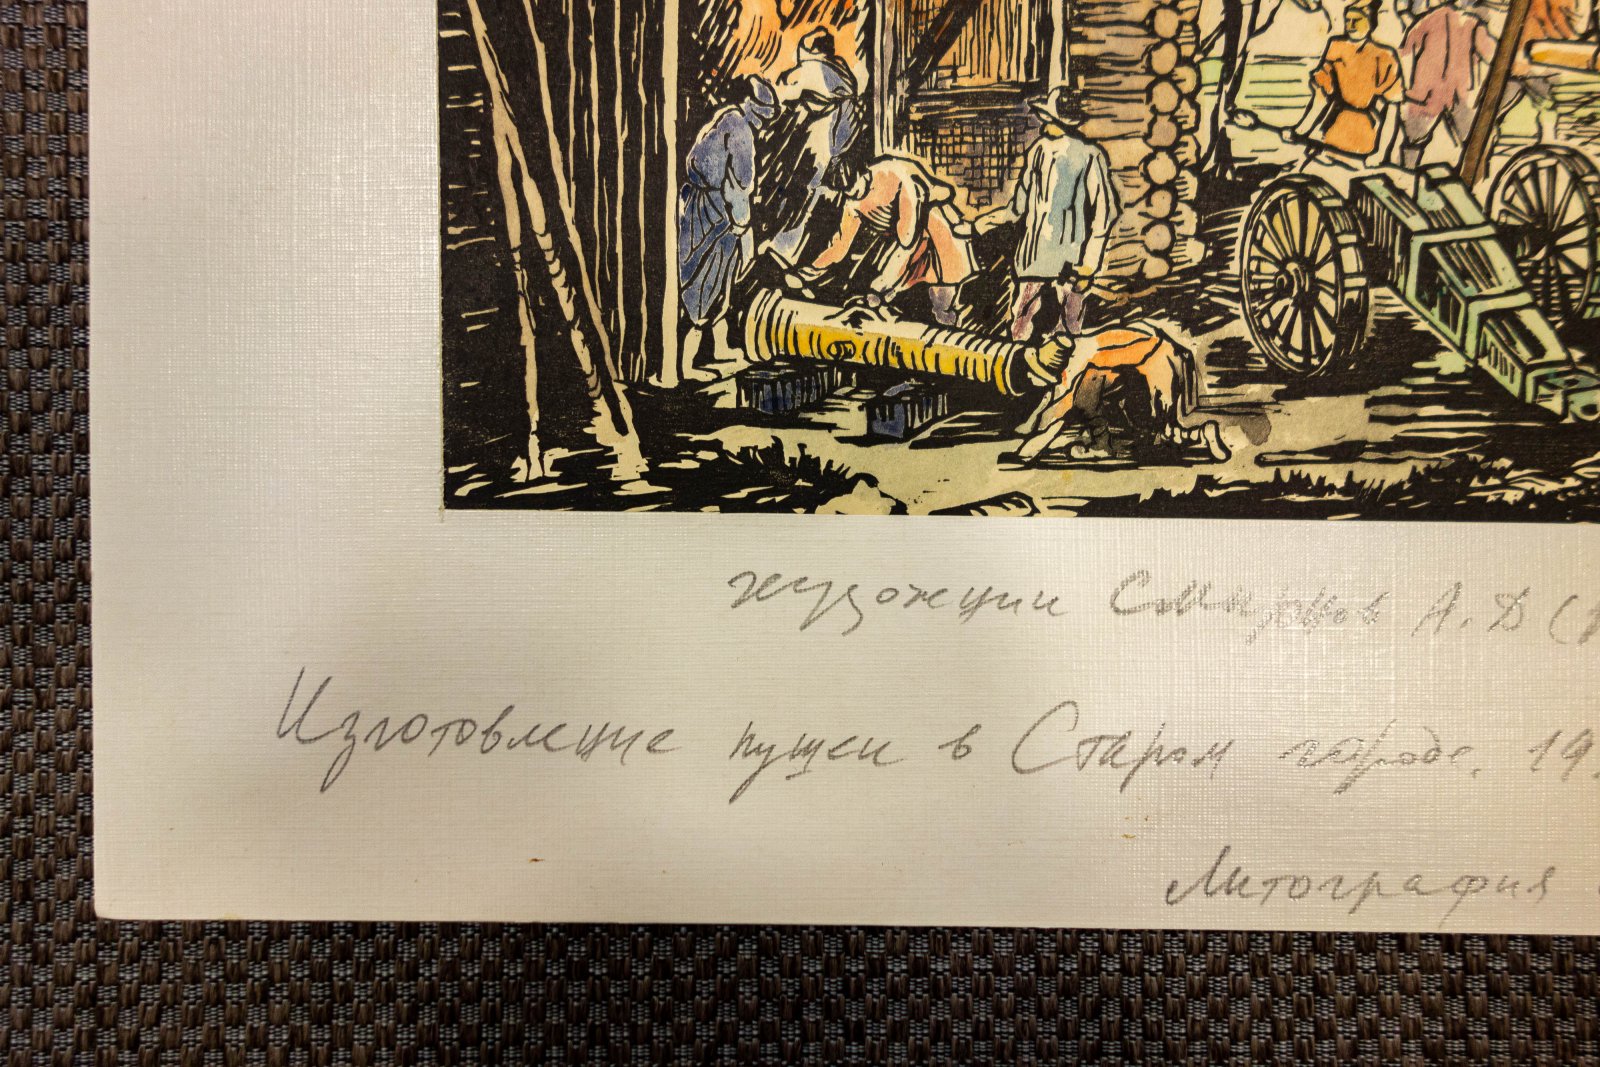 художник Смирнов А.Д (
Изготовление пушек в Старом городе. 19
Литография